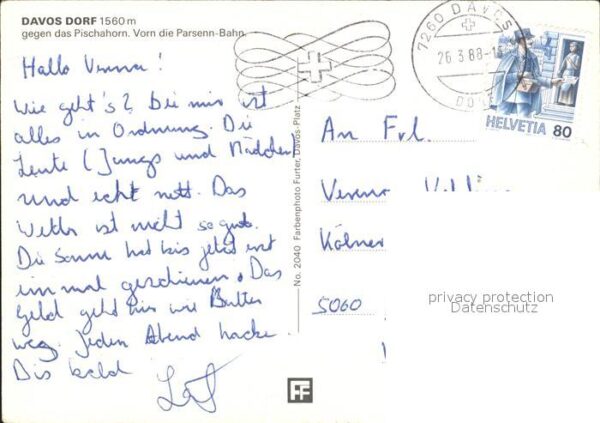 DAVOS DORF 1560 m
gegen das Pischahorn. Vorn die Parsenn-Bahn.
Hallo Verena!
Wie geht's? Bei mir ist
alles in Ordnung. Die
Leute (Jungs und Mädchen)
sind echt nett. Das
Wetter ist nicht so gut.
Die Sonne hat bis jetzt erst
einmal geschienen. Das
Geld geht hier wie Butter
weg. Jeden Abend
Bis bald
No. 2040 Farbenphoto Furter, Davos-Platz
7260 DAVOS
26.3.88-1
DO
HELVETIA 80
An Frl.
Verena
Kölner
5060
privacy protection
Datenschutz
FF